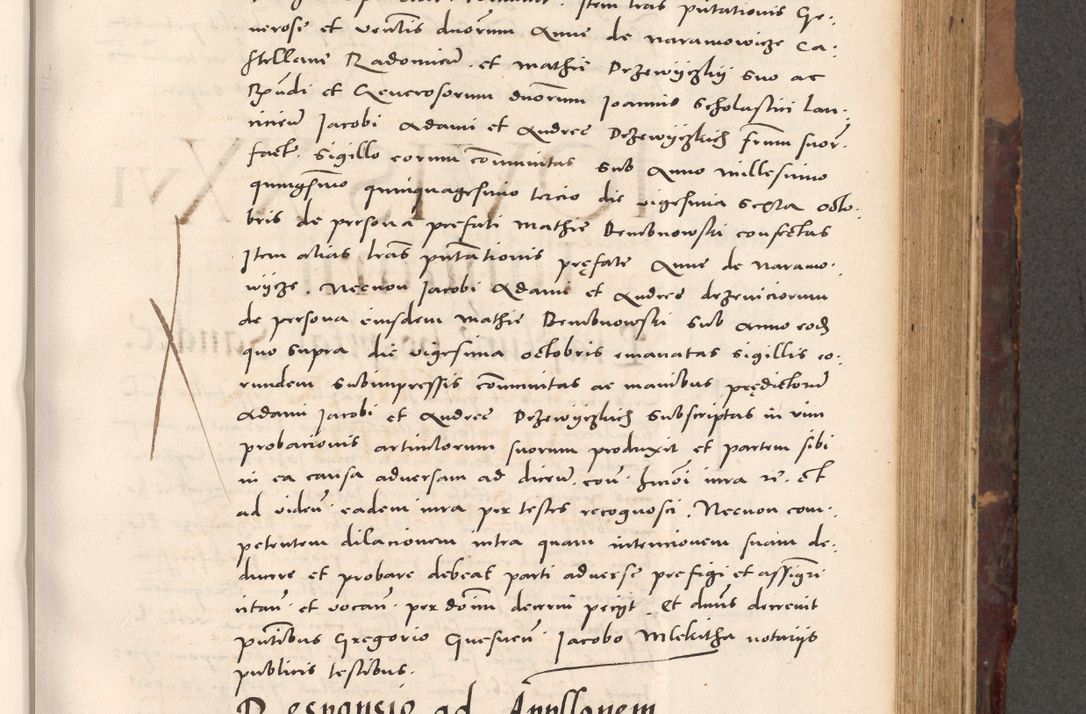 Item lras putationis Ge-
nerose et ventis duorum Anne de Naramowicze Ca-
stellane Radomien. et Mathie Drzewyczky suo ac
Rndi et Generosorum duorum Joannis Scholastici Lan-
ncien Jacobi Adami et Andree Drzewyczkich frum suor.
fact. sigillo eorum comunitas sub Anno millesimo
quingsimo quinquagesimo tercio die vigesima sexta octo-
bris de persona prefati Mathie Bembnowski confectas
Item alias lras putationis pręfate Anne de Naramo-
wicze. Necnon Jacobi Adami et Andree drzeviciorum
de persona eiusdem Mathie Bembnowski sub anno eod
quo supra die vigesima octobris emanatas sigillis eo-
rundem subimpressis comunitas ac manibus prędictorum
Adami Jacobi et Andree Drzewyczkich subscriptas in vim
probacionis articulorum suorum produxit et partem sibi
in ea causa adversam ad dicen. con. hmoi iura rn. et
ad viden. eadem iura per testes recognosci. Necnon com-
petentem dilacionem intra quam intencionem suam de-
ducere et probare debeat parti adverse prefigi et assigri
citan. et vocan. per domi decerni pecijt. Et dnus decrevit
pntibus Gregorio Jacobo Mlekitha notarijs
publicis testibus.
Responsio ad Appllonem